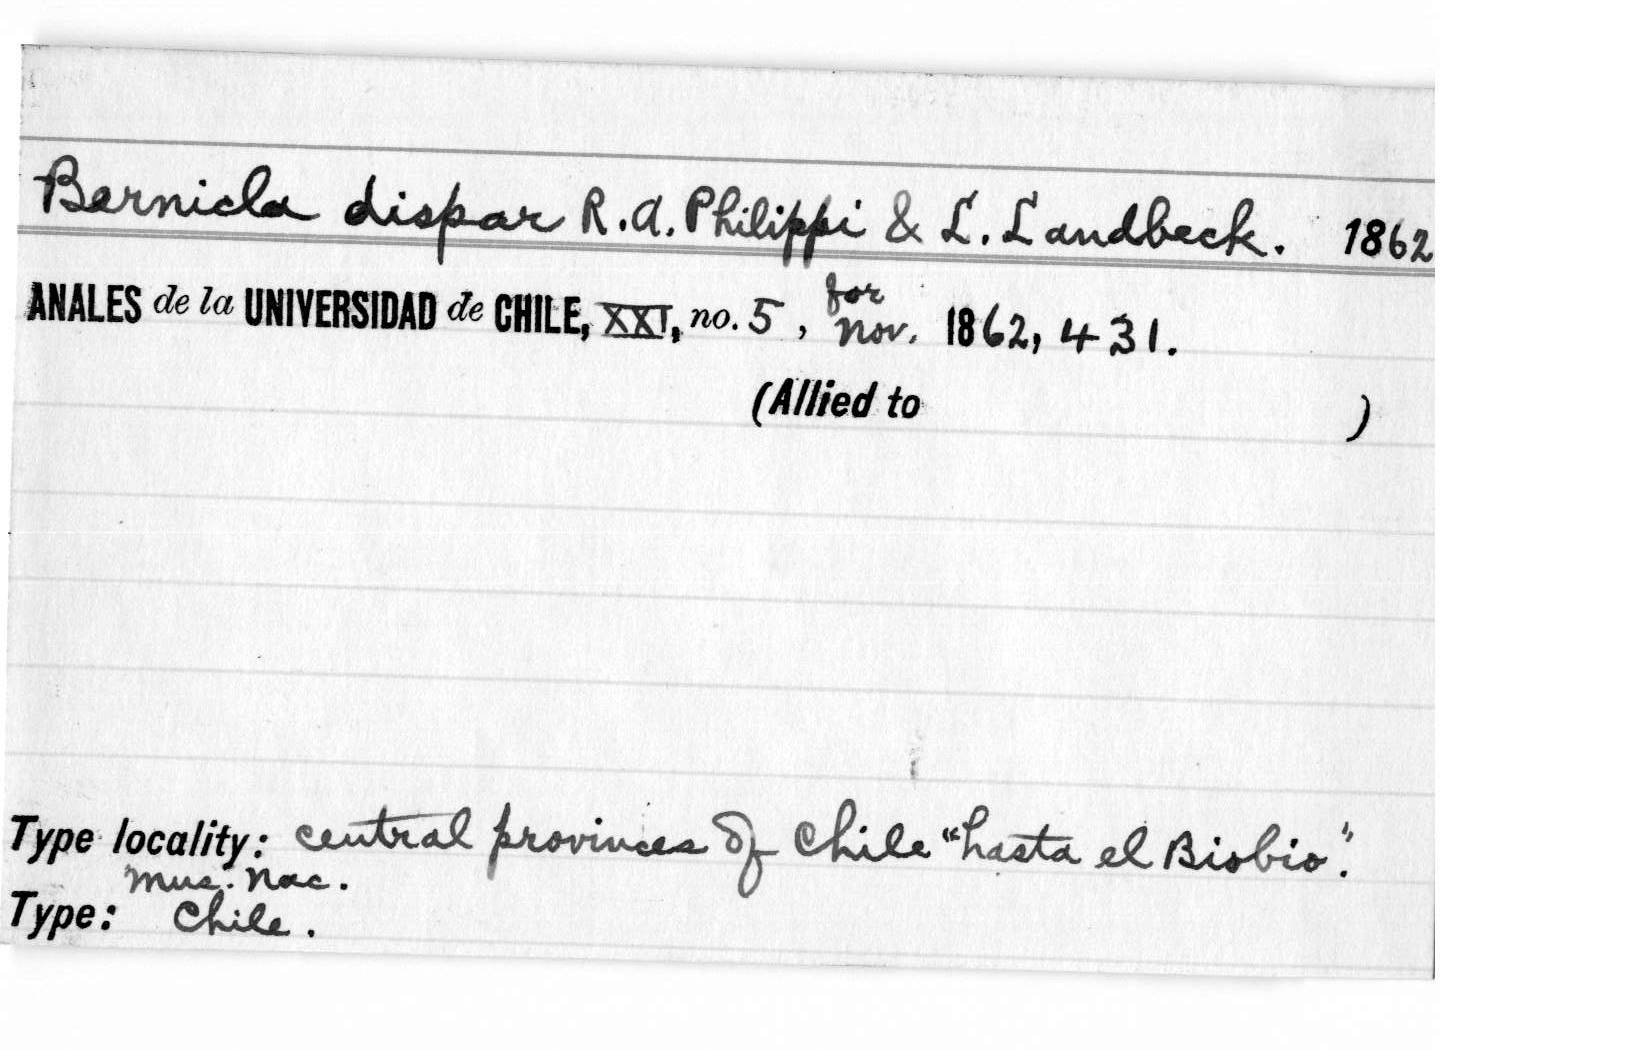 Bernicla dispar R.A. Philippi & L. Landbeck. 1862
ANALES de la UNIVERSIDAD de CHILE, XXI, no. 5, for Nov. 1862, 431.
(Allied to )
Type locality: central provinces of Chile "hasta el Biobio".
Mus. Nac.
Type: Chile.